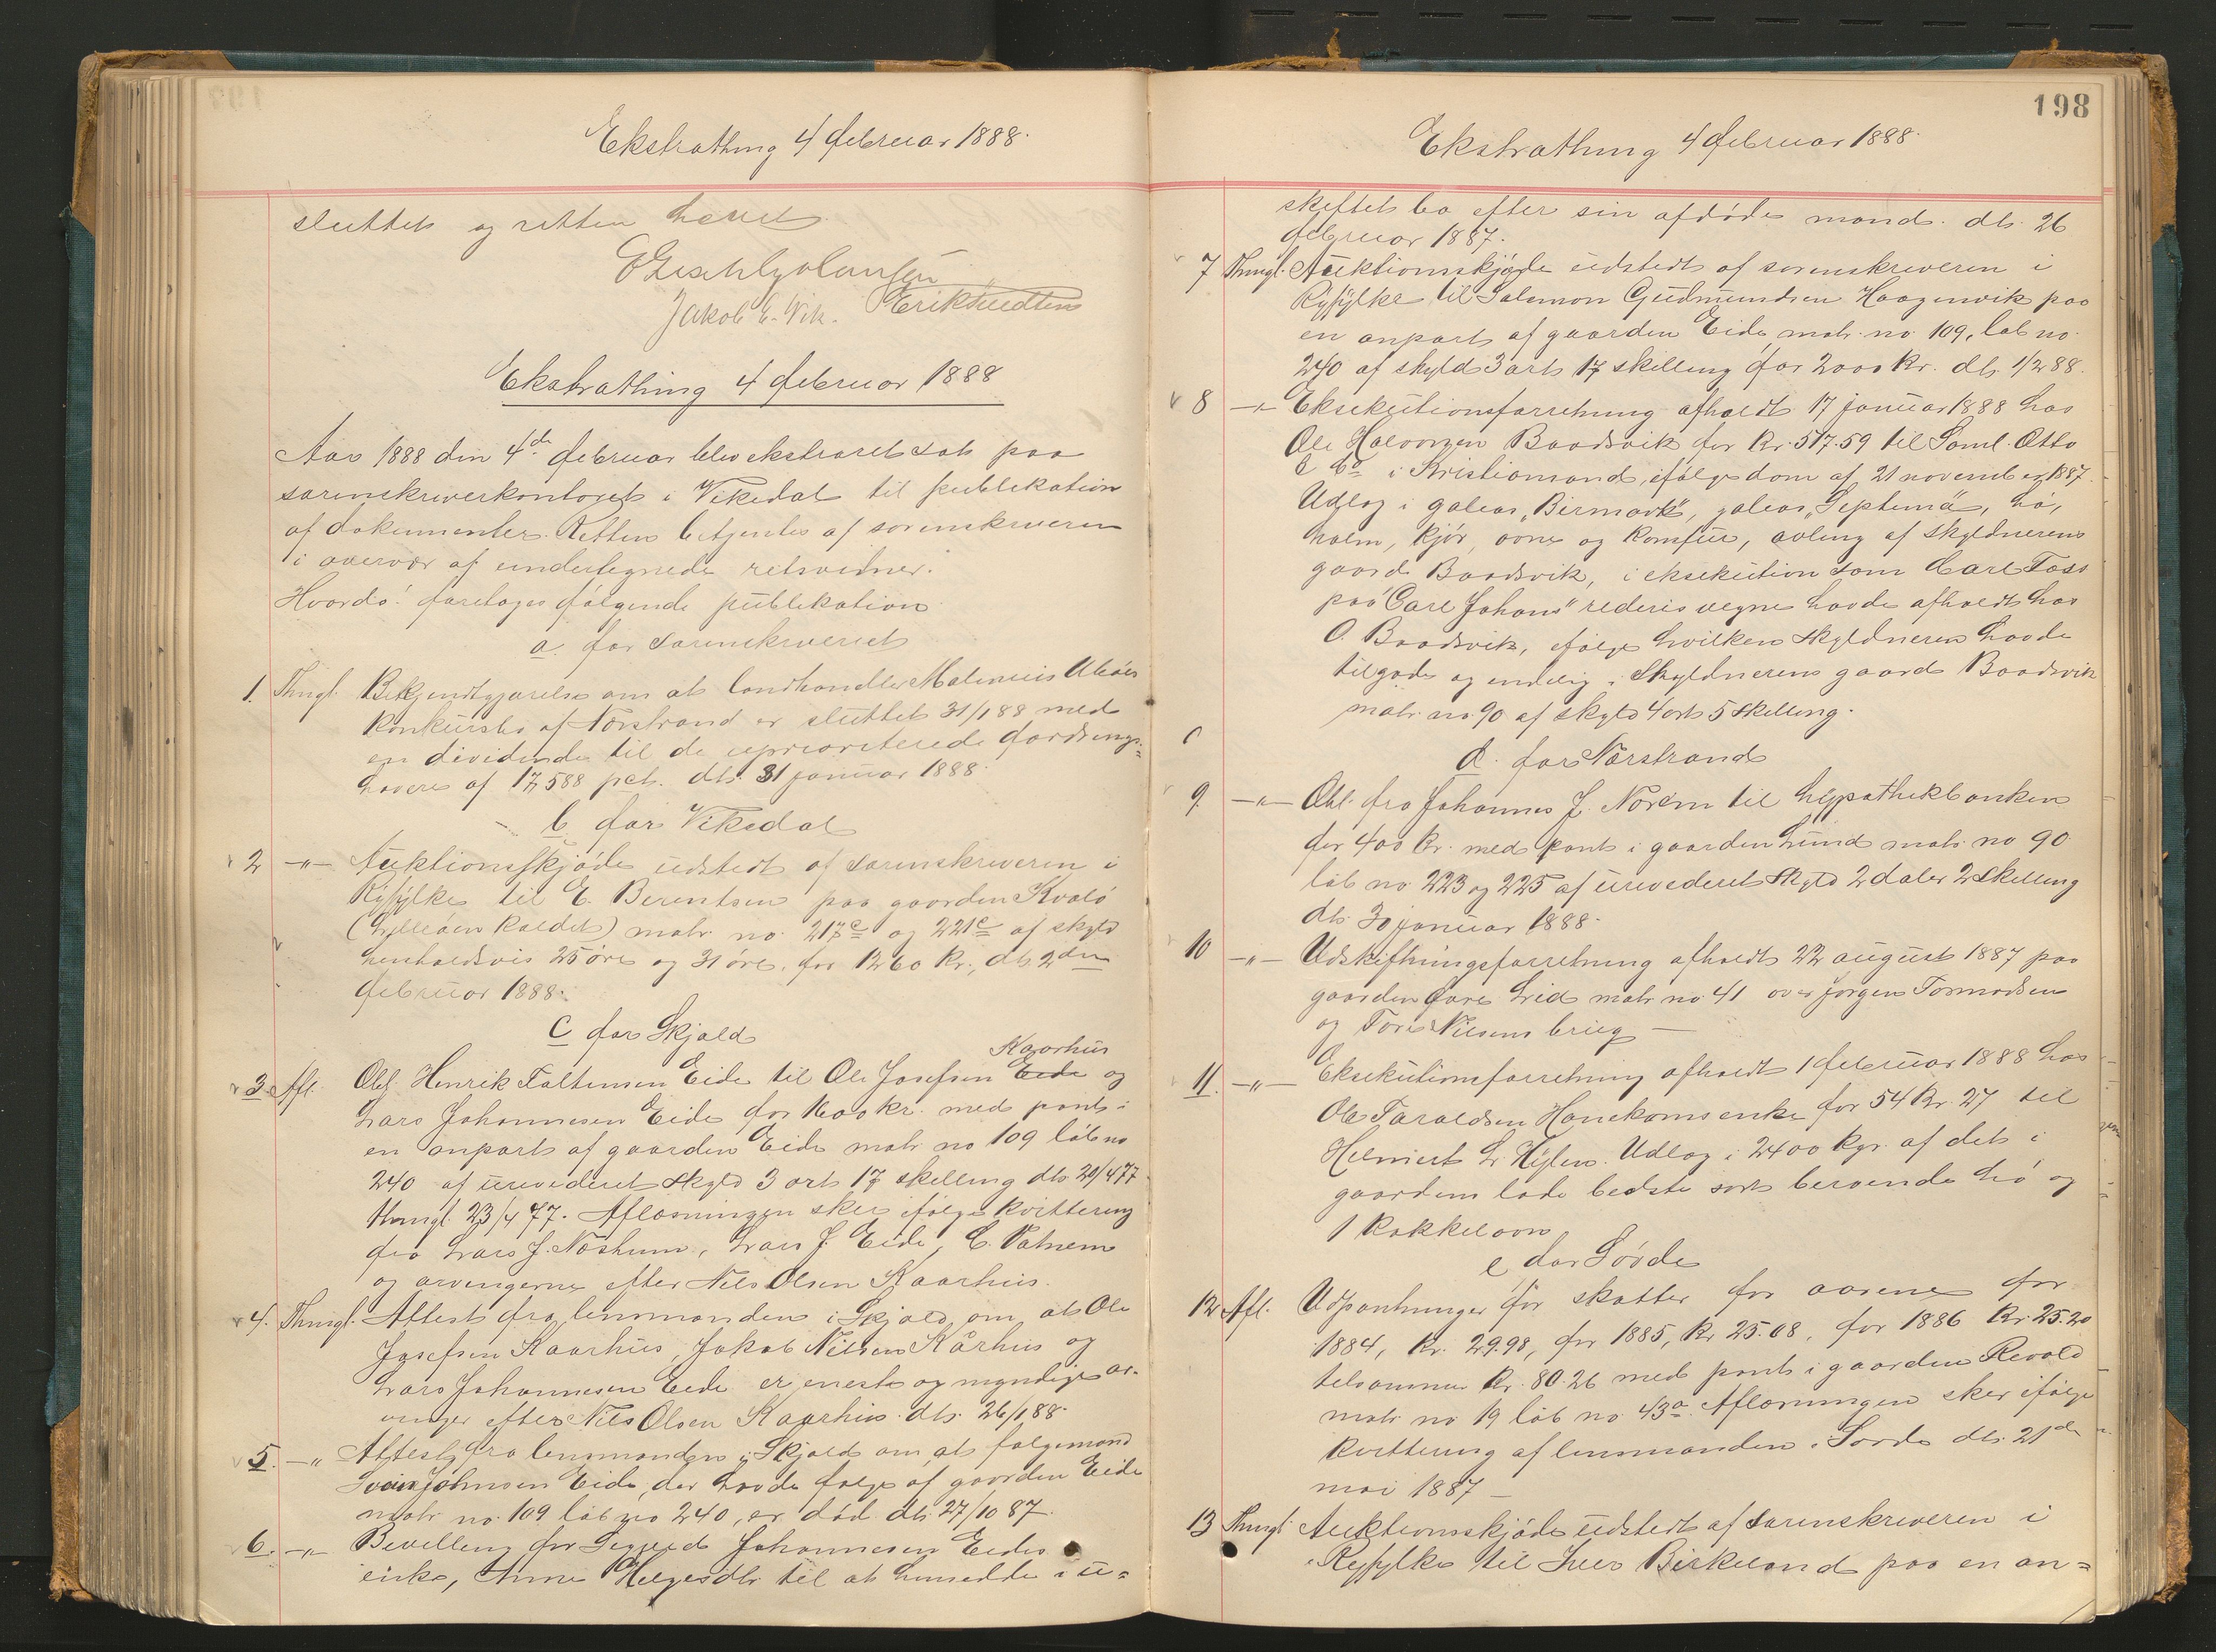 Ekstrathing 4 februar 1888.
sluttet og retten hævet.
Jakob E. Vik.
Ekstrathing 4 februar 1888
Aar 1888 den 4de februar blev ekstraret sat paa
sorenskriverkontoret i Vikedal til publikation
af dokumenter. Retten betjentes af sorenskriveren
i overvær af undertegnede retsvidner.
Hvorda! foretoges følgende publikation
a. for sorenskriveriet
1. Thingl. Bekjendtgjørelse om at landhandler
konkursbo af Nerstrand er sluttet 31/1 88 med
en dividende til de uprioriterede fordrings-
havere af 17,588 pct. dt. 31 januar 1888.
b for Vikedal
2 -"- Auktionsskjøde udstedt af sorenskriveren i
Ryfylke til E. Berentsen paa gaarden Kvalø
kaldet) matr. no. 217c og 221c af skyld
henholdsvis 25 øre og 31 øre. for 1260 kr., dt. 2den
februar 1888.
c for Skjold
Kaarhus
3. Afl. Obl. Henrik Faltinsen Eide til Ole Josefsen Eide og
Lars Johannesen Eide for 1600 kr. med pant i
en anpart af gaarden Eide matr no 109 løb no
240 af urevideret skyld 3 ort 17 skilling dt. 21/4 77
thingl. 23/4 77. Aflæsningen sker ifølge kvittering
fra Lars J. Næshum, Lars J. Eide, C. Vatnem
og arvingerne efter Nils Olsen Kaarhus.
4. Thingl. Attest fra lensmanden i Skjold om at Ole
Josefsen Kaarhus, Jakob Nilsen Kårhus og
Lars Johannesen Eide er eneste og myndige ar-
vinger efter Nils Olsen Kaarhus. dt. 26/1 88.
5. -"- Attest fra lensmanden i Skjold om at folgemand
Svein Johnsen Eide, der havde folge af gaarden Eide
matr. no. 109 løb no 240, er død dt. 27/10 87.
6. -"- Bevilling for Sigved Johannesen Eides
enke, Anne Helgesdtr. til at hensidde i u-
198
Ekstrathing 4 februar 1888.
skiftet bo efter sin afdøde mand. dt. 26
februar 1887.
7 Thingl. Auktionsskjøde udstedt af sorenskriveren i
Ryfylke til Salomon Gudmundsen Haagenvik paa
en anpart af gaarden Eide, matr. no. 109, løb no.
240 af skyld 3 ort 17 skilling for 2000 kr. dt. 1/2 88.
8 -"- Eksekutionsforretning afholdt 17 januar 1888 hos
Ole Halvorsen Baadsvik for kr. 517.59 til Saml. Otto
& Co i Kristiansand, ifølge dom af 21 november 1887.
Udlæg i galeas "Birmark", galeas "Septema", hø,
halm, kjør, ovne og komfur, avling af skyldnerens
gaard Baadsvik, i eksekution som Carl Foss
paa "Carl Johans" rederis vegne havde afholdt hos
O. Baadsvik, ifølge hvilken skyldneren havde
tilgode og endelig i skyldnerens gaard Baadsvik
matr. no. 90 af skyld 4 ort 5 skilling.
d. for Nærstrand
9. -"- Obl. fra Johannes J. Norem til hypothekbanken
for 400 kr. med pant i gaarden Lund matr. no 90
løb no 223 og 225 af urevideret skyld 2 daler 2 skilling
dt. 30 januar 1888.
10 -"- Udskiftningsforretning afholdt 22 august 1887 paa
gaarden øvre Lid matr. no. 41 over Jørgen Tormodsen
og Tore Nilsens brug —
11. -"- Eksekutionsforretning afholdt 1 februar 1888 hos
Ole Taraldsen Hanekams enke for 54 kr. 27 til
Helmert L. Hylen. Udlæg i 2400 kgr. af det i
gaardens lade bedste sort beroende hø og
1 kakkelovn
e for Søvde
12 Afl. Udpantninger for skatter for aarene for
1884, kr. 29.98, for 1885, kr 25.08, for 1886 kr. 25.20
tilsammen kr. 80.26 med pant i gaarden Revold
matr no 19 løb no 43a. Aflæsningen sker ifølge
kvittering af lensmanden i Sovde dt. 21de
mai 1887 —
13 Thingl. Auktionsskjøde udstedt af sorenskriveren i
Ryfylke til Iver Birkeland paa en an=